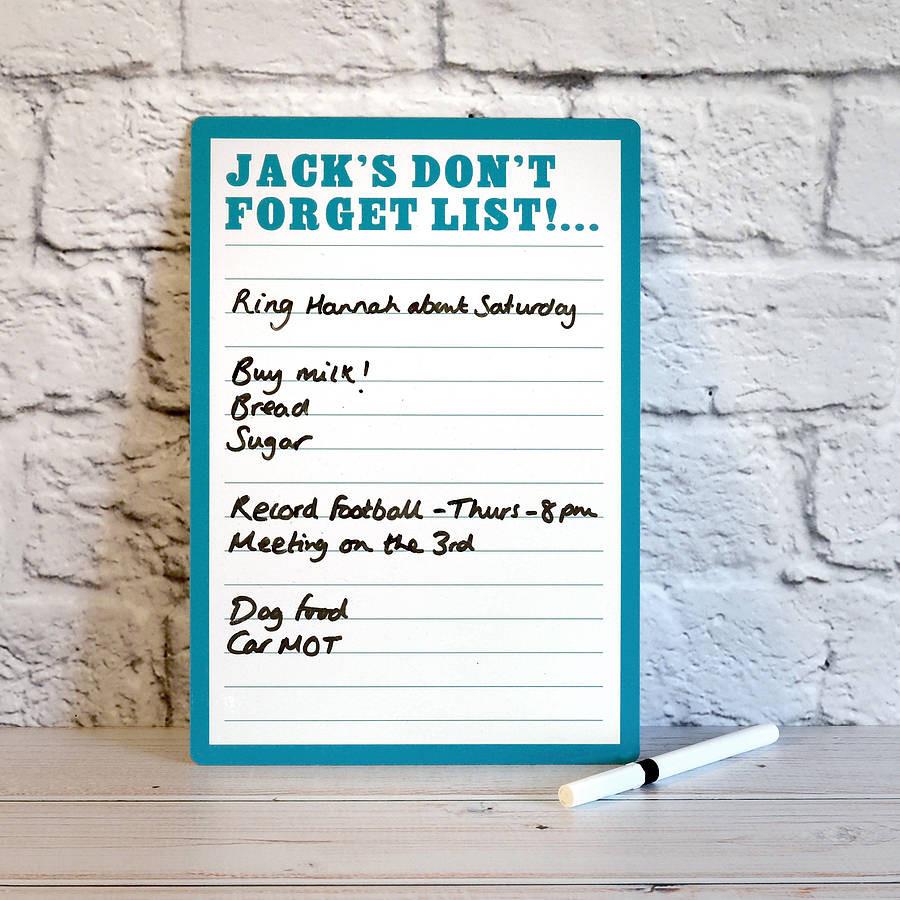 JACK'S DON'T
FORGET LIST!...
Ring Hannah about Saturday
Buy milk!
Bread
Sugar
Record football - Thurs - 8pm
Meeting on the 3rd
Dog food
Car MOT